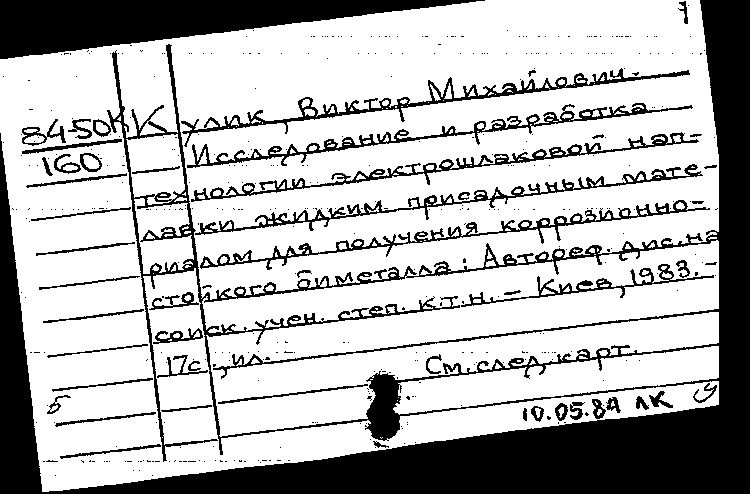 1
84-50К Кулик, Виктор Михайлович.
160 Исследование и разработка
технологии электрошлаковой нап-
лавки жидким присадочным мате-
риалом для получения коррозионно-
стойкого биметалла: Автореф. дис. на
соиск. учен. степ. к.т.н. – Киев, 1983. –
17с., ил.
См. след. карт.
Б
10.05.84 ЛК